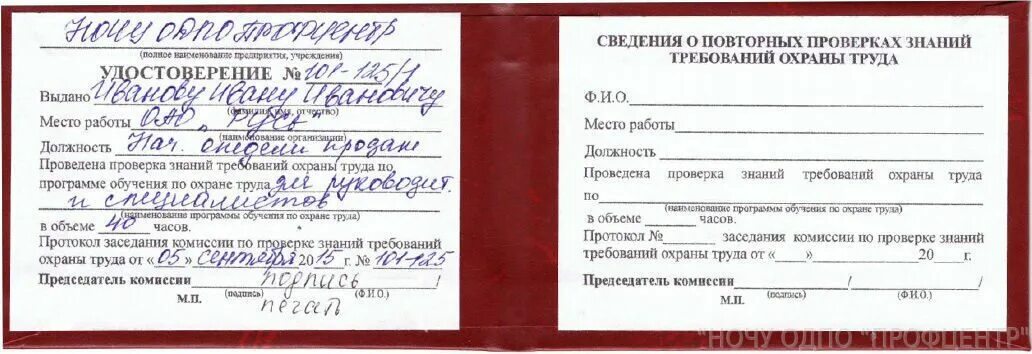 НОЧУ ОДПО Профцентр
(полное наименование предприятия, учреждения)
УДОСТОВЕРЕНИЕ № 101-125/1
Выдано Иванову Ивану Ивановичу
(фамилия, имя, отчество)
Место работы ОАО „Русь"
(наименование организации)
Должность Нач. отдела продаж
Проведена проверка знаний требований охраны труда по
программе обучения по охране труда для руководит.
и специалистов
(наименование программы обучения по охране труда)
в объеме 40 часов.
Протокол заседания комиссии по проверке знаний требований
охраны труда от « 05 » сентября 2015 г. № 101-125
Председатель комиссии подпись / /
М.П. (подпись) (Ф.И.О.)
печать
СВЕДЕНИЯ О ПОВТОРНЫХ ПРОВЕРКАХ ЗНАНИЙ
ТРЕБОВАНИЙ ОХРАНЫ ТРУДА
Ф.И.О.
Место работы
Должность
Проведена проверка знаний требований охраны труда
по
(наименование программы обучения по охране труда)
в объеме часов.
Протокол № заседания комиссии по проверке знаний
требований охраны труда от « » 20 г.
Председатель комиссии / /
М.П. (подпись) (Ф.И.О.)
"НОЧУ ОДПО "ПРОФЦЕНТР"